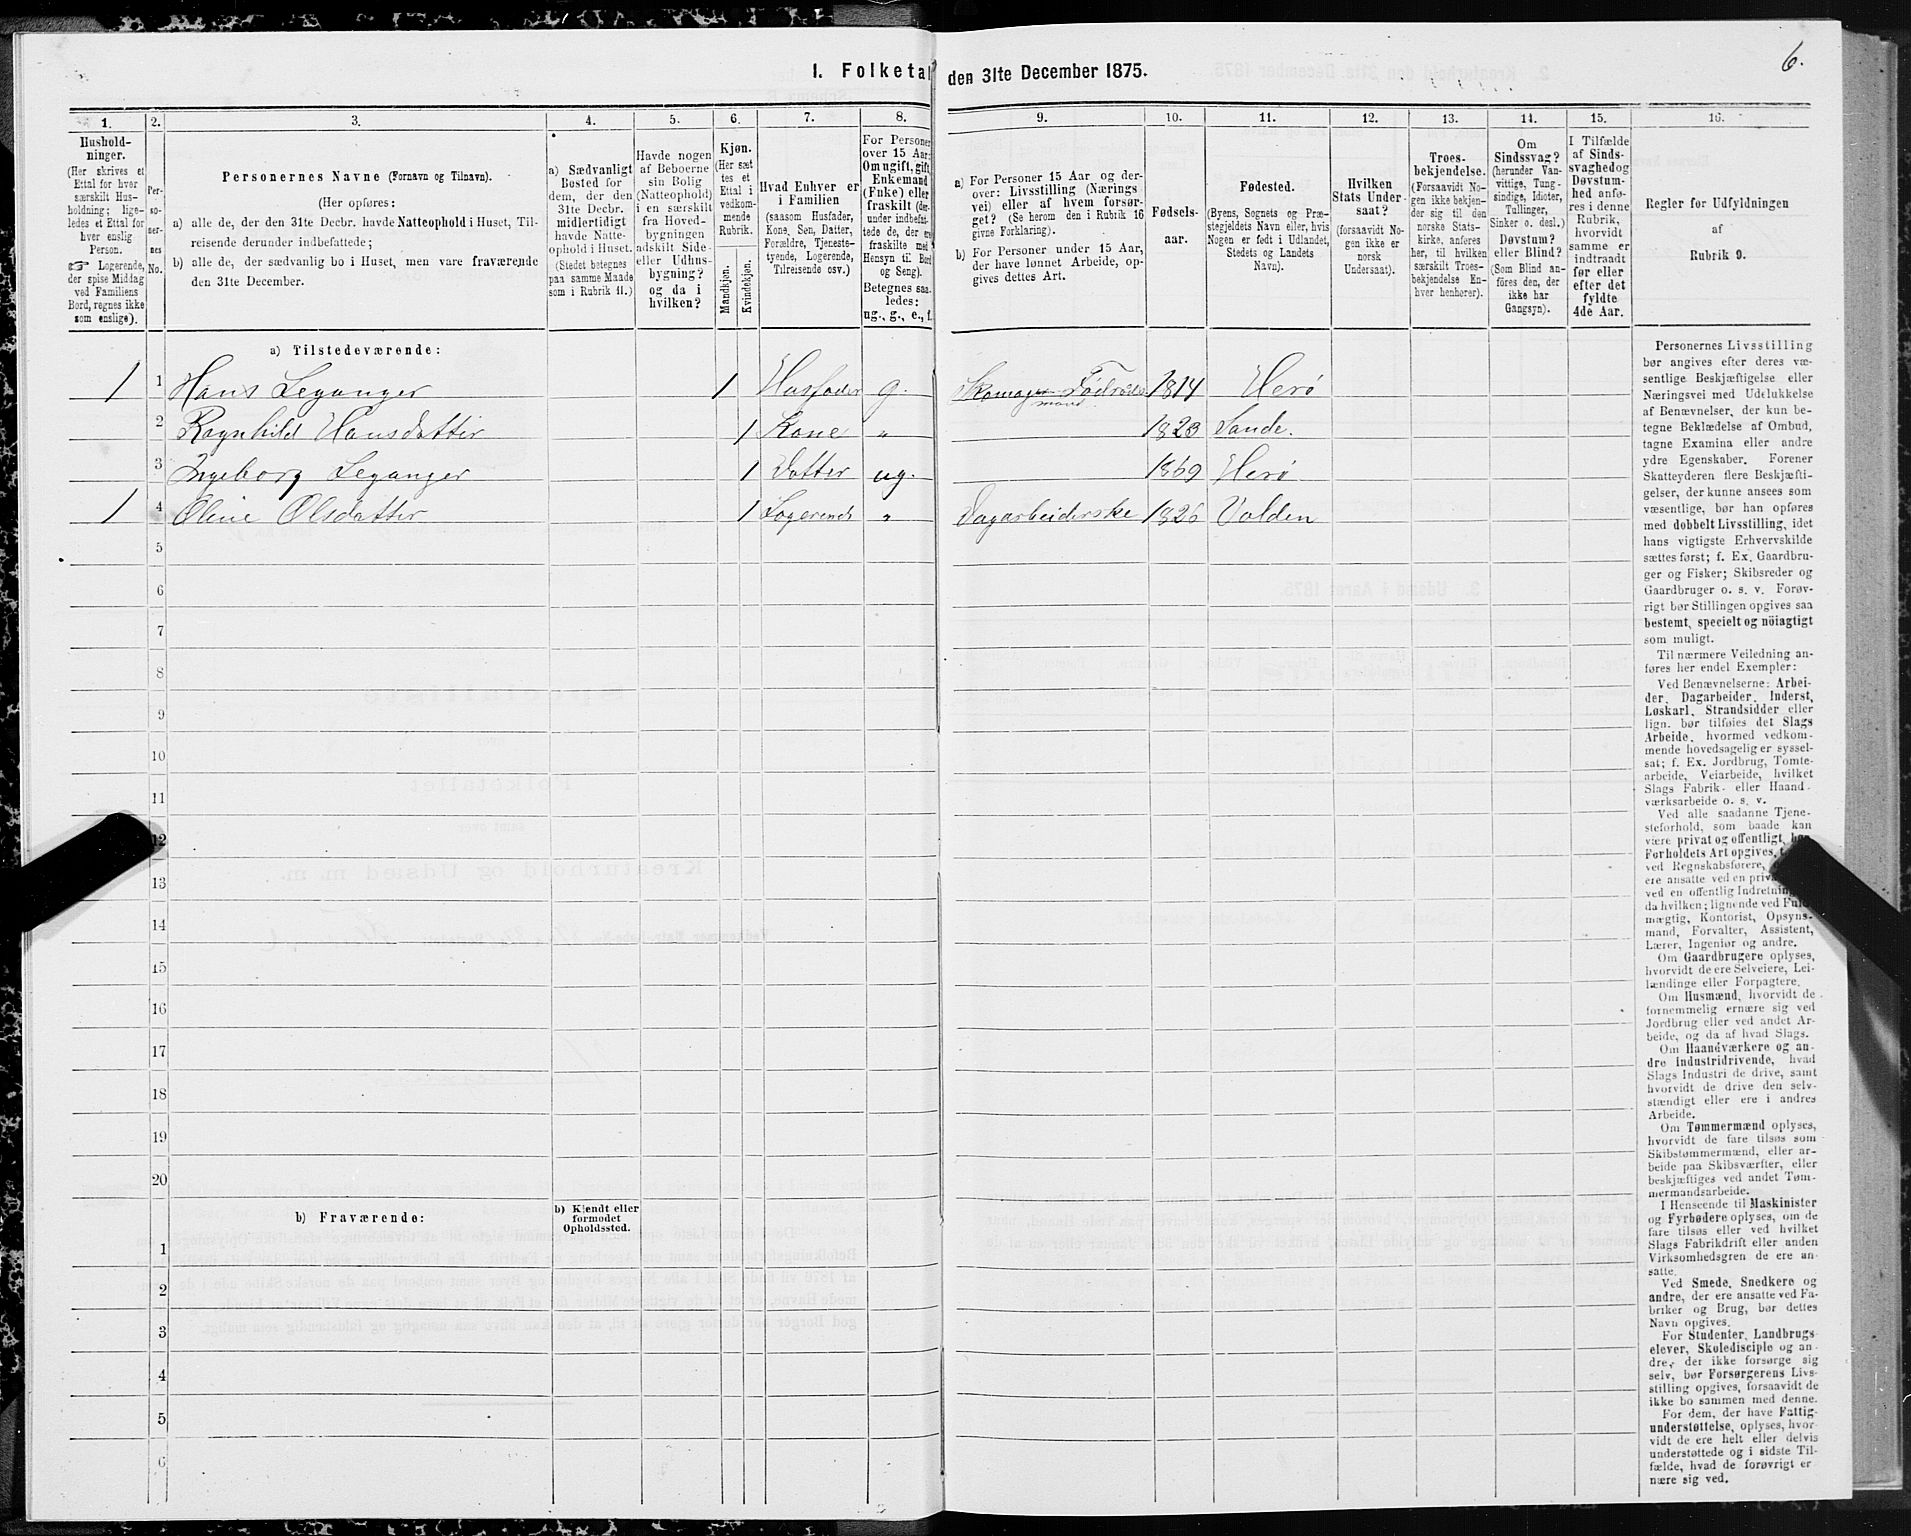 I. Folketal den 31te December 1875.
6.
1. 2. 3. 4. 5. 6. 7. 8. 9. 10. 11. 12. 13. 14. 15. 16.
Hushold-
ninger.
(Her skrives et
Ettal for hver
særskilt Hus-
holdning; lige-
ledes et Ettal for
hver enslig
Person.
☞ Logerende,
der spise Middag
ved Familiens
Bord, regnes ikke
som enslige).
Per-
so-
ner-
nes
No.
Personernes Navne (Fornavn og Tilnavn).
(Her opføres:
a) alle de, der den 31te Decbr. havde Natteophold i Huset, Til-
reisende derunder indbefattede;
b) alle de, der sædvanlig bo i Huset, men vare fraværende
den 31te December.
a) Sædvanligt
Bosted for
dem, der den
31te Decbr.
midlertidigt
havde Natte-
ophold i Huset.
(Stedet betegnes
paa samme Maade
som i Rubrik 11.)
Havde nogen
af Beboerne
sin Bolig
(Natteophold)
i en særskilt
fra Hoved-
bygningen
adskilt Side-
eller Udhus-
bygning?
og da i
hvilken?
Kjøn.
(Her sæt-
tes et
Ettal i
vedkom-
mende
Rubrik.
Mandkjøn.
Kvindekjøn.
Hvad Enhver er
i Familien
(saasom Husfader,
Kone, Søn, Datter,
Forældre, Tjeneste-
tyende, Logerende,
Tilreisende osv.)
For Personer
over 15 Aar:
Om ugift, gift,
Enkemand
(Enke) eller
fraskilt (der-
under indbefat-
tede de, der ere
fraskilte med
Hensyn til Bord
og Seng).
Betegnes saa-
ledes:
ug., g., e., f.
a) For Personer 15 Aar og der-
over: Livsstilling (Nærings-
vei) eller af hvem forsør-
get? (Se herom den i Rubrik 16
givne Forklaring).
b) For Personer under 15 Aar,
der have lønnet Arbeide, op-
gives dettes Art.
Fødsels-
aar.
Fødested.
(Byens, Sognets og Præ-
stegjeldets Navn eller, hvis
Nogen er født i Udlandet,
Stedets og Landets
Navn).
Hvilken
Stats Under-
saat?
(forsaavidt No-
gen ikke er
norsk
Undersaat).
Troes-
bekjendelse.
(Forsaavidt No-
gen ikke bekjen-
der sig til den
norske Stats-
kirke, anføres
her, til hvilken
særskilt Troes-
bekjendelse En-
hver henhører).
Om
Sindssvag?
(herunder Van-
vittige, Tung-
sindige, Idioter,
Tullinger,
Sinker o. desl.)
Døvstum?
eller Blind?
(Som Blind an-
føres den, der
ikke har
Gangsyn).
I Tilfælde
af Sinds-
svaghed og
Døvstum-
hed anfø-
res i denne
Rubrik,
hvorvidt
samme er
indtraadt
før eller
efter det
fyldte
4de Aar.
Regler for Udfyldningen
af
Rubrik 9.
a) Tilstedeværende:
1 1 Hans Leganger 1 Husfader g. Skomager Födraads 1814 Herö
mand.
2 Ragnhild Hansdatter 1 Kone " 1823 Sande.
3 Ingeborg Leganger 1 Datter ug. 1869 Herö
1 4 Oline Olsdatter 1 Logerende " Dagarbeiderske 1826 Volden
5
6
7
8
9
10
11
12
13
14
15
16
17
18
19
20
b) Fraværende:
b) Kjendt eller
formodet
Opholdssted.
1
2
3
4
5
6
Personernes Livsstilling
bør angives efter deres væ-
sentlige Beskjæftigelse eller
Næringsvei med Udelukkelse
af Benævnelser, der kun be-
tegne Beklædelse af Ombud,
tagne Examina eller andre
ydre Egenskaber. Forener
Skatteyderen flere Beskjæfti-
gelser, der kunne ansees som
væsentlige, bør han opføres
med dobbelt Livsstilling, idet
hans vigtigste Erhvervskilde
sættes først; f. Ex. Gaardbru-
ger og Fisker; Skibsreder og
Gaardbruger o. s. v. Forøv-
rigt bør Stillingen opgives saa
bestemt, specielt og nöiagtigt
som muligt.
Til nærmere Veiledning an-
føres her endel Exempler:
Ved Benævnelserne: Arbei-
der, Dagarbeider, Inderst,
Løskarl, Strandsidder eller
lign. bør tilføies det Slags
Arbeide, hvormed vedkom-
mende hovedsagelig er syssel-
sat; f. Ex. Jordbrug, Tomte-
arbeide, Veiarbeide, hvilket
Slags Fabrik- eller Haand-
værksarbeide o. s. v.
Ved alle saadanne Tjene-
steforhold, som baade kan
være privat og offentligt, bør
Forholdets Art opgives,
ved Regnskabsførere,
ere ansatte ved en
ved en offentlig Indretning
da hvilken; lignende ved Fuld-
mægtig, Kontorist, Opsyns-
mand, Forvalter, Assistent,
Lærer, Ingeniør og andre.
Om Gaardbrugere oplyses,
hvorvidt de ere Selveiere, Lei-
lændinge eller Forpagtere.
Om Husmænd, hvorvidt de
fornemmelig ernære sig ved
Jordbrug eller ved andet Ar-
beide, og da af hvad Slags.
Om Haandværkere og an-
dre Industridrivende, hvad
Slags Industri de drive, samt
hvorvidt de drive den selv-
stændigt eller ere i andres
Arbeide.
Om Tømmermænd oplyses,
hvorvidt de fare tilsøs som
Skibstømmermænd, eller ar-
beide paa Skibsværfter, eller
beskjæftiges ved andet Tøm-
mermandsarbeide.
I Henseende til Maskinister
og Fyrbødere oplyses, om de
fare tilsøs eller ved hvilket
Slags Fabrikdrift eller anden
Virksomhedsgren de ere an-
satte.
Ved Smede, Snedkere og
andre, der ere ansatte ved Fa-
briker og Brug, bør dettes
Navn opgives.
For Studenter, Landbrugs-
elever, Skoledisciple og an-
dre, der ikke forsørge sig
selv, bør Forsørgerens Livs-
stilling opgives, forsaavidt de
ikke bo sammen med denne.
For dem, der have Fattig-
understøttelse, oplyses, hvor-
vidt de ere helt eller delvis
understøttede og i sidste Til-
fælde, hvad de forøvrigt er-
nære sig ved.